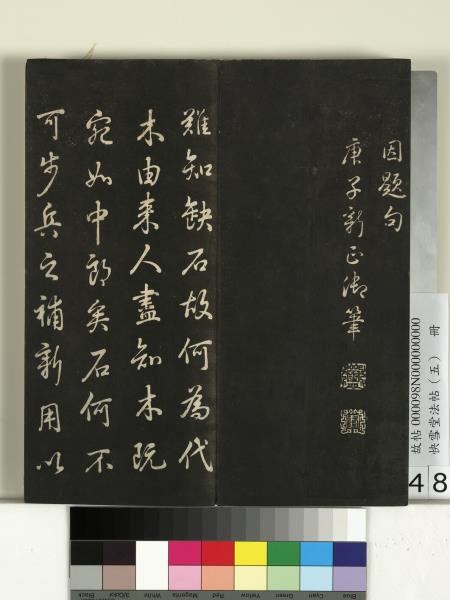 因題句
庚子新正御筆
難知缺石故何為代
木由來人盡知木既
宛如中郎矣石何不
可步兵之補新用以
故帖 000098N000000000
快雪堂法帖（五） 冊
48
Black
3/Color
White
Magenta
Red
Yellow
Green
Cyan
Blue